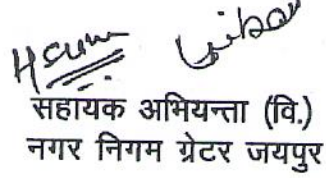 सहायक अभियन्ता (वि.)
नगर निगम ग्रेटर जयपुर